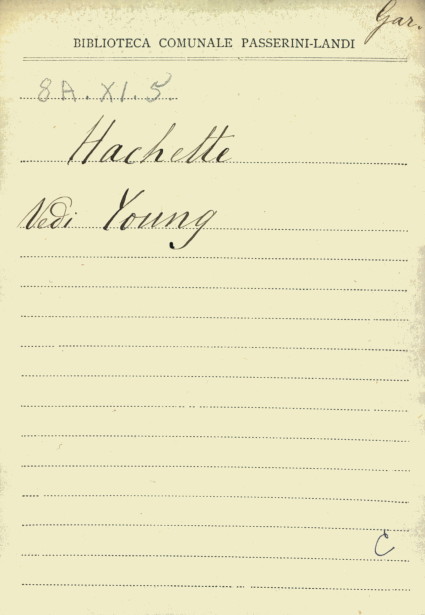 Gar.
BIBLIOTECA COMUNALE PASSERINI-LANDI
8A.XI.5.
Hachette
Vedi Young
C